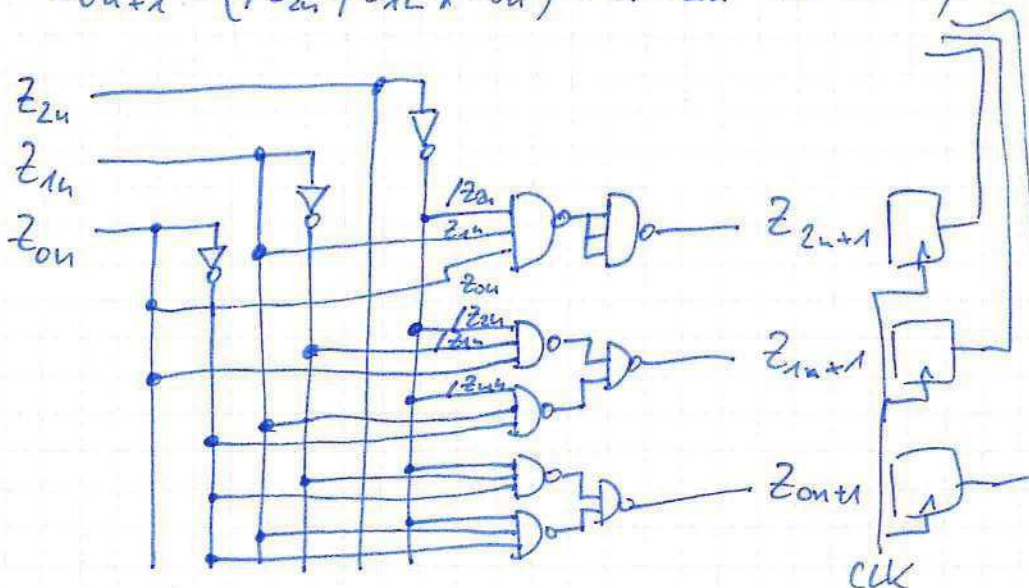 Z2n
Z1n
Z0n
/Z2n
Z1n
Z0n
Z2n+1
/Z2n
/Z1n
Z1n+1
/Z2n
Z0n+1
CLK